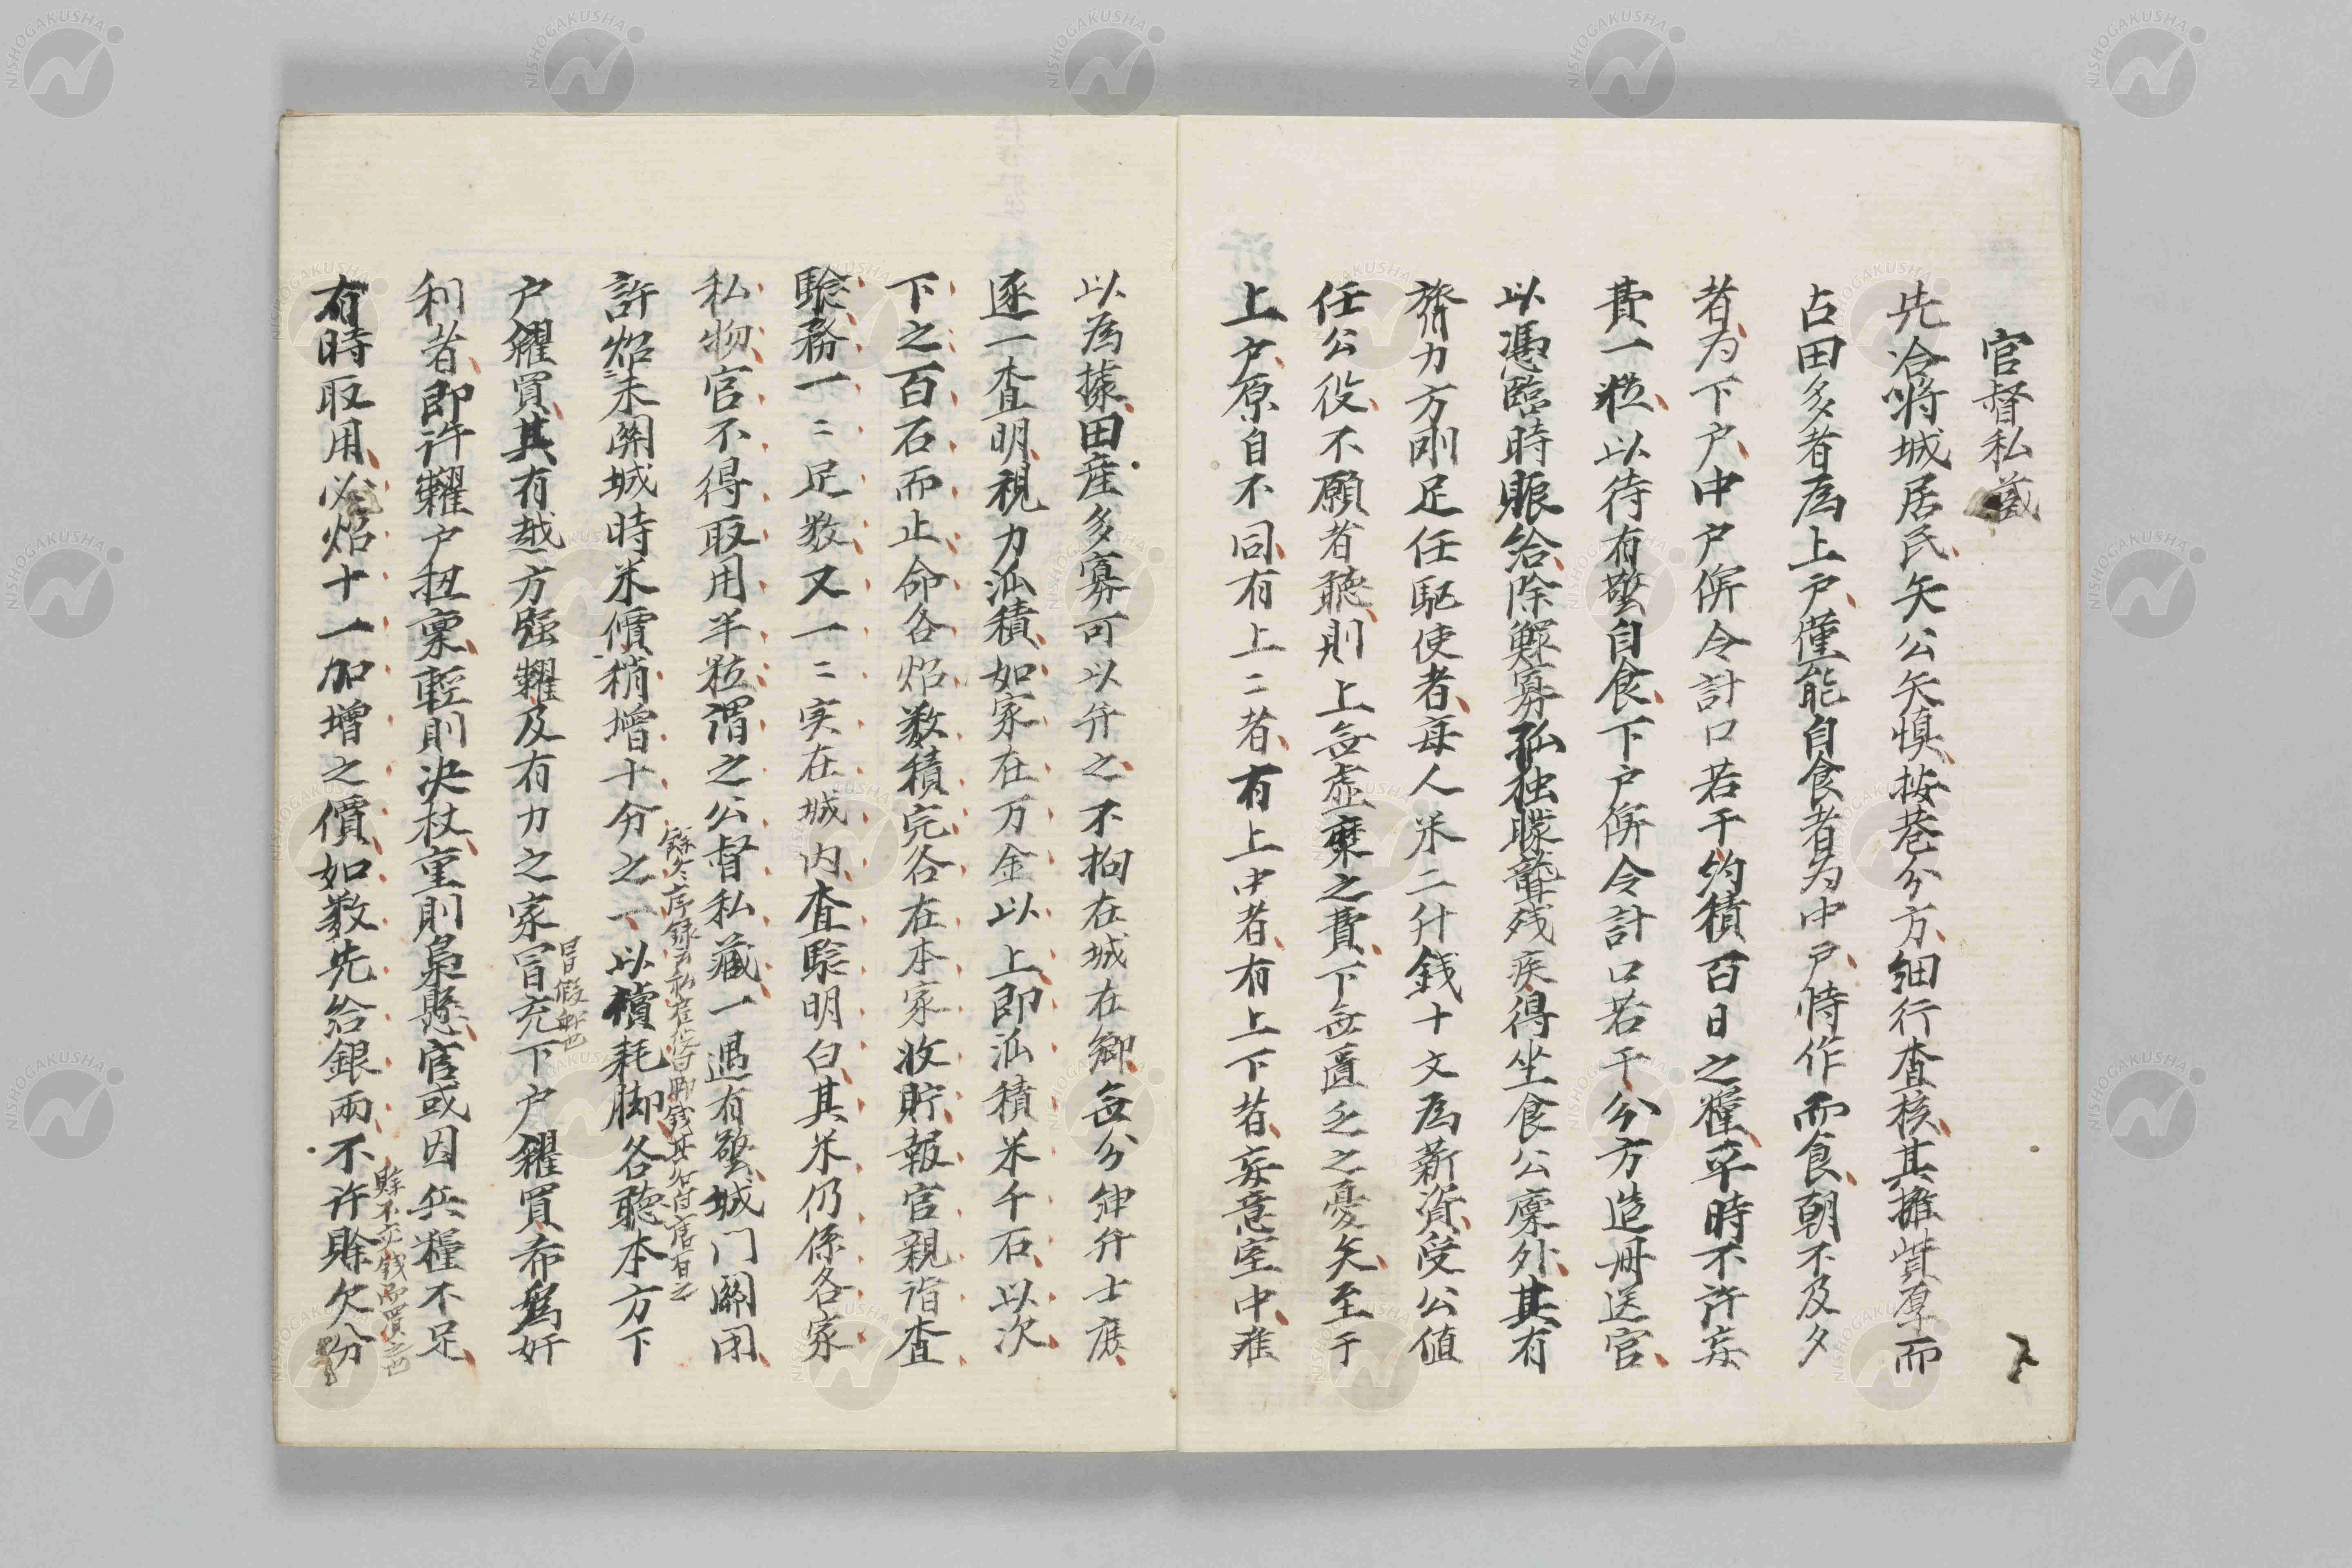 官督私蔵
先洽将城居民矢公矢慎按巷分方細行査核其擔貲厚而
占田多者為上戸僅能自食者为中戸恃作而食朝不及夕
者为下戸中戸俻令計口若干约積百日之糧平時不許妄
費一粒以待有警自食下戸俻令計口若干分方造冊送官
以憑臨時賑給除鰥寡孤独矇聾残疾得坐食公廩外其有
膂力方剛足任駈使者毎人米二升銭十文為薪資受公値
任公役不願者聴則上無虚糜之費下無匱乏之憂矣至于
上戸原自不同有上〻者有上中者有上下者妄意室中难
以為據田産多寡可以弁之不拘在城在郷無分紳弁士庶
逐一査明視力派積如家在万金以上即派積米千石以次
下之百石而止命各炤数積完各在本家收貯報官親詣査
驗務一〻足数又一〻実在城内査驗明白其米仍係各家
私物官不得取用半粒謂之公督私藏一遇有警城门關閉
許炤未關城時米價稍增十分之一以積耗脚各聴本方下
戸糴買其有越方强糴及有力之家冒充下戸糴買希為奸
冒假称也
利者即許糶戸扭稟輕則決杖重則梟懸官或因兵糧不足
有時取用必炤十一加增之價如数先給銀兩不許賒欠分
賒不交銭而買之也